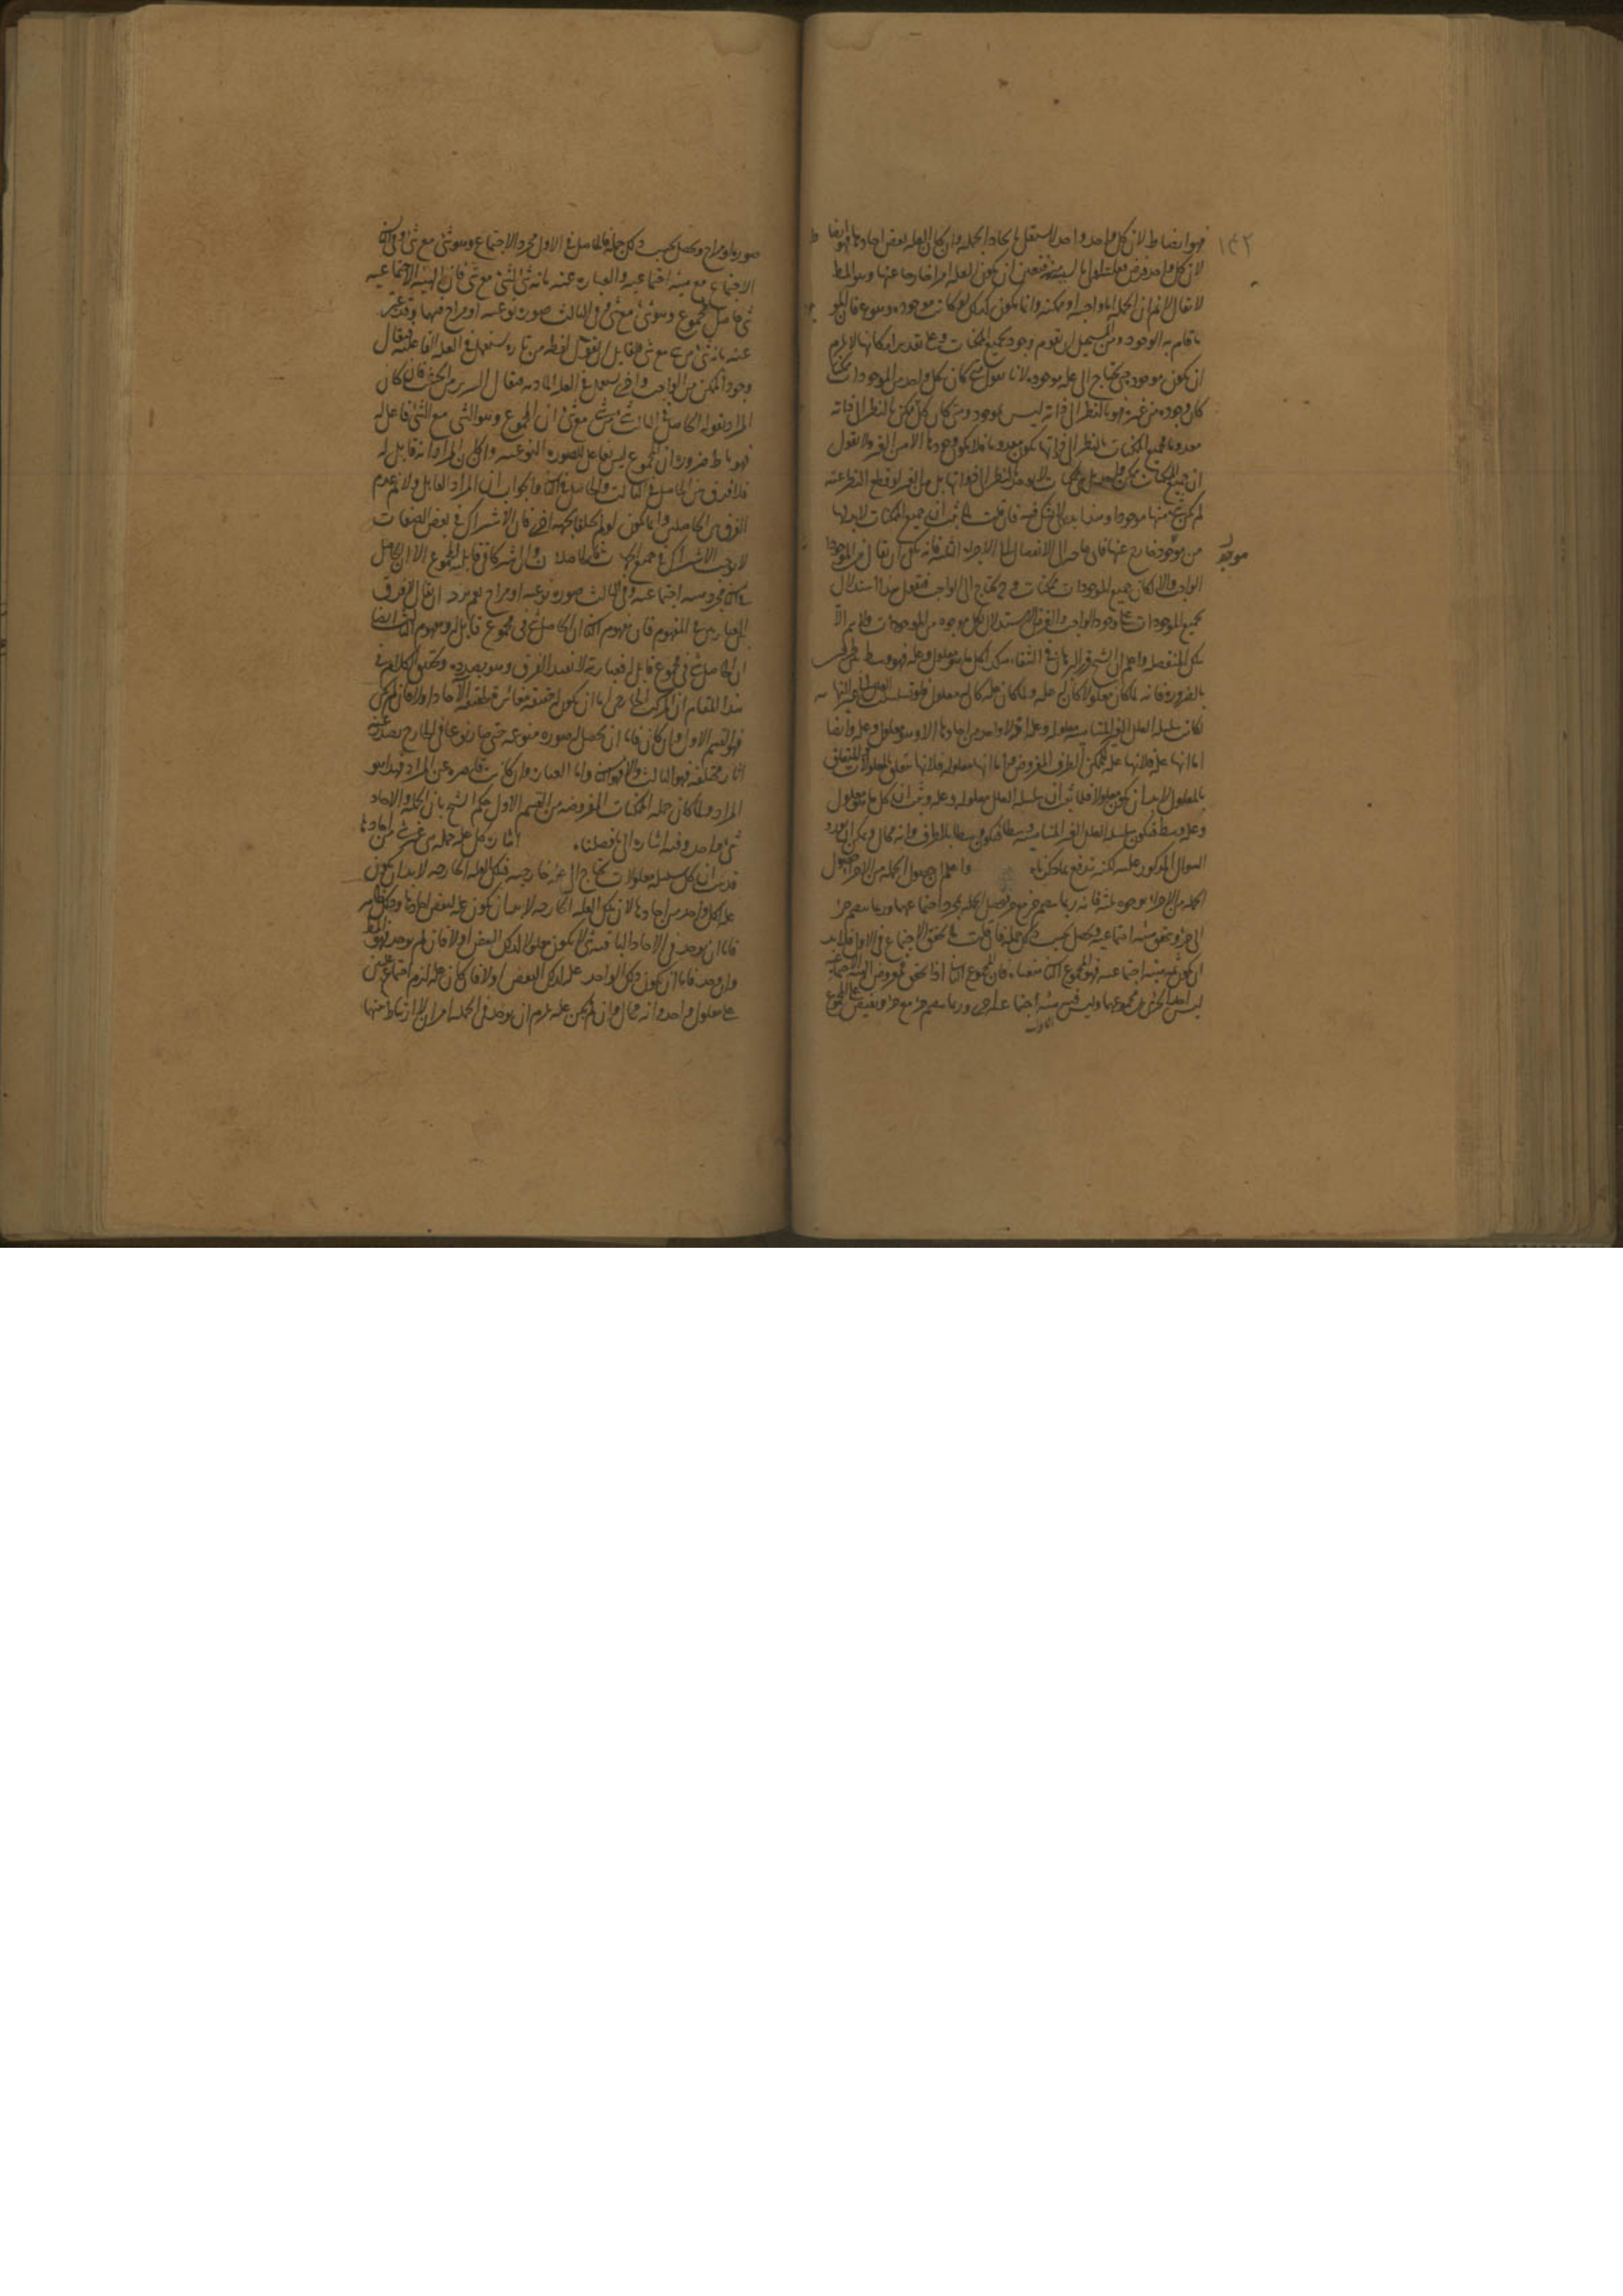 ١٤٢
فهو ايضا ط لان كل واحد واحد لا يستقل بايجاد الجملة وان كان العلة بعض احادها فهو ايضا ط
لان كل واحد فرض فعلته اولى بالسببية فتعين ان يكون العلة امرا خارجا عنها وهو المط
لا يقال لانم ان الجملة اما واجبة او ممكنة وانما يكون كذلك لو كانت موجودة وهو مم فان الموجود
ما قام به الوجود ومن المستحيل ان يقوم وجود بجميع الممكنات وعلى تقدير امكانها لا يلزم
ان يكون موجودة حتى يحتاج الى علة موجودة لانا نقول متى كان كل واحد من الموجودات ممكنا
كان وجوده من غيره فهو بالنظر الى ذاته ليس بموجود ومتى كان كل ممكن بالنظر الى ذاته
معدوما فجميع الممكنات بالنظر الى ذواتها يكون معدوما فلا يكون وجودها الا من الغير ولا نقول
ان جميع الممكنات بالنظر الى ذواتها بل من الغير لو قطع النظر عنه
لم يكن شئ منها موجودا وهذا بديهى لا شك فيه فان قلت لما ثبت ان جميع الممكنات لا بد لها
من موجد خارج عنها فاى حاجة الى الانفصال الى الاجزاء الثلثة فانه يكفى ان يقال فى الموجودات
موجد
الواجب والا لكان جميع الموجودات ممكنات وح يحتاج الى الواجب فنقول هذا استدلال
بجميع الموجودات على وجود الواجب والغرض الاستدلال بكل موجود من الموجودات ولا يتم الا
بتلك المنفصلة واعلم ان الشيخ قرر البرهان فى الشفاء هكذا كل ما هو معلول وعلة فهو وسط بين طرفين
بالضرورة فانه لما كان معلولا كان له علة ولما كان علة كان له معلول فلو تسلسلت العلل الى غير النهاية
لكانت سلسلة العلل الغير المتناهية معلولة وعلة اذ لا واحد من احادها الا وهو معلول وعلة وايضا
اما انها علة فلانها علة للممكن الطرف المفروض واما انها معلولة فلانها متعلقة بالمعلولات والمتعلق
بالمعلول لا بد ان يكون معلولا فلما ثبت ان سلسلة العلل معلولة وعلة وثبت ان كل ما هو معلول
وعلة وسط فيكون سلسلة العلل الغير المتناهية وسطا فيكون وسطا بلا طرف وانه محال ويمكن ان يورد
السوال المذكور عليه لكنه يندفع بما ذكرناه واعلم ان حصول الجملة من الاجزاء حصول
الجملة من الاجزاء بوجوه ثلثة فانه ربما ينضم جزء مع جزء ويحصل الجملة بمجرد اجتماعهما وربما ينضم جزء
الى جزء ويحقق هيئة اجتماعية ويحصل بحسب ذلك جملة فان قلت لما تحقق الاجتماع فى الاول فلا بد
ان يكون ثمة هيئة اجتماعية فهو المجموع الثانى فان المجموع الثانى اذا تحقق معروض الهيئة الاجتماعية
ليس احد الجزئين بل مجموعهما وليس فيه هيئة اجتماعية اخرى وربما ينضم جزء مع جزء ويفيض على المجموع
صورة او مزاج ويحصل بحسب ذلك جملة فالحاصل فى الاول مجرد الاجتماع وهو شئ مع شئ وفى الثانى
الاجتماع مع هيئة اجتماعية والعبارة عنه بانه شئ لشئ مع شئ فان الهيئة الاجتماعية
شئ حاصل للمجموع وهو شئ مع شئ وفى الثالث صورة نوعية او مزاج فيها وقد عبر
عنه بانه شئ من شئ مع شئ فلقائل ان يقول لفظة من تارة يستعمل فى العلة الفاعلية فيقال
وجود الممكن من الواجب واخرى يستعمل فى العلة المادية فيقال السرير من الخشب فان كان
المراد بقوله الحاصل فى الثالث شئ من شئ مع شئ ان المجموع وهو الشئ مع الشئ فاعل له
فهو باطل ضرورة ان المجموع ليس بفاعل للصورة النوعية وان كان المراد انه قابل له
فلا فرق بين الحاصل فى الثالث والحاصل فى الثانى والجواب ان المراد القابل ولا نم عدم
الفرق بين الحاصلين وانما يكون لو لم يختلفا بجهة اخرى فان الاشتراك فى بعض الصفات
لا يوجب الاشتراك فى جميع الجهات فالحاصلان وان اشتركا فى قابلية المجموع الا ان الحاصل
فى الثانى مجرد هيئة اجتماعية وفى الثالث صورة نوعية او مزاج نعم يرد ان يقال لا فرق
بين العبارتين فى المفهوم فان مفهوم الثانى ان الحاصل شئ فى مجموع قابل له ومفهوم الثالث ايضا
ان الحاصل شئ فى مجموع قابل له فعبارته لا تفيد الفرق وهو بصدده وتحقيق الكلام فى
هذا المقام ان المركب الخارجى اما ان يكون له حقيقة مغايرة لحقيقة الآحاد او لا فان لم يكن
فهو القسم الاول وان كان فاما ان يحصل له صورة منوعة حتى صار نوعا فى الخارج يصدر عنه
آثار مختلفة فهو الثالث والا فهو الثانى واما العبارة وان كانت قاصرة عن المراد فهذا هو
المراد ولما كان جملة الممكنات المفروضة من القسم الاول حكم الشيخ بان الجملة والآحاد
شئ واحد وفيه اشارة الى ما فصلناه اشارة كل علة جملة هى غير شئ من احادها
قد ثبت ان كل سلسلة معلولات يحتاج الى علة خارجية فتلك العلة الخارجة لا بد ان يكون
علة لكل واحد من احادها لان تلك العلة الخارجة لا بد ان يكون علة لبعض احادها وذلك ظاهر
فاما ان يوجد فى الآحاد الباقية شئ لا يكون معلولا لذلك البعض او لا فان لم يوجد فهو المط
وان وجد فاما ان يكون ذلك الواحد علة لذلك البعض او لا فان كان علة لزم اجتماع علتين
على معلول واحد وانه محال وان لم يكن علة لزم ان يوجد فى الجملة امران لا ارتباط بينهما